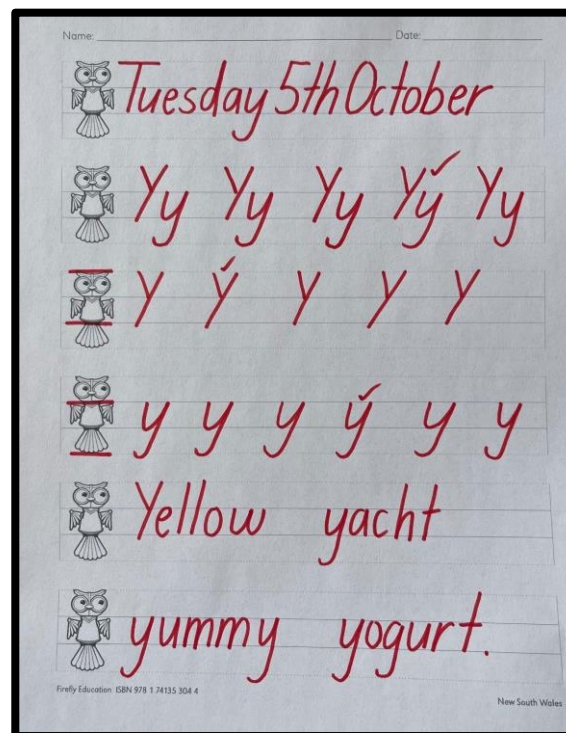 Name: Date:
Tuesday 5th October
Yy Yy Yy Yy Yy
Y Y Y Y Y
y y y y y y
Yellow yacht
yummy yogurt.
Firefly Education ISBN 978 1 74135 304 4
New South Wales